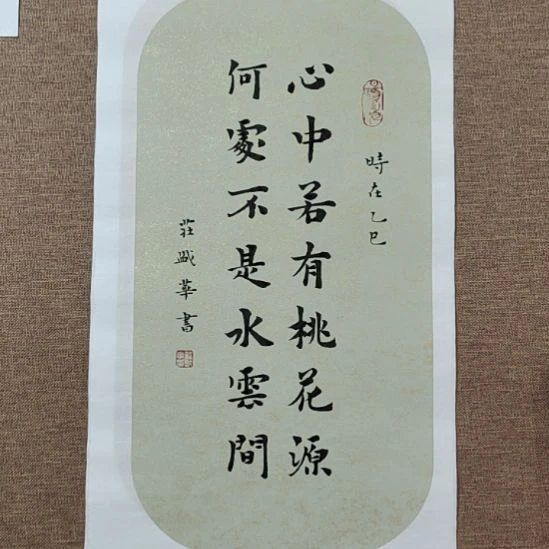 時在乙巳
心中若有桃花源
何處不是水雲間
莊盛華書